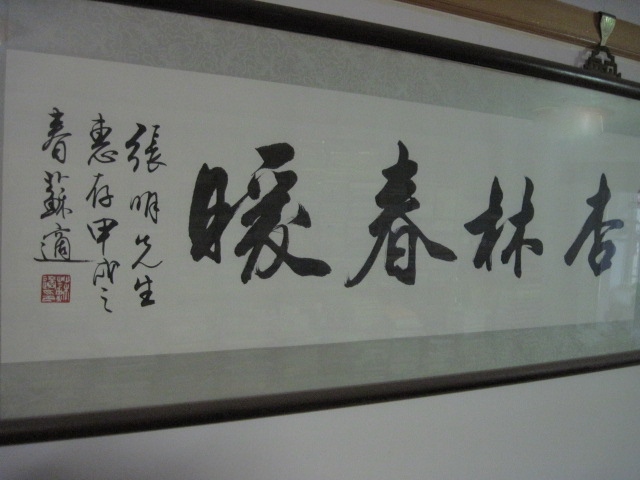 杏林春暖
張明先生
惠存甲戌之
春蘇適